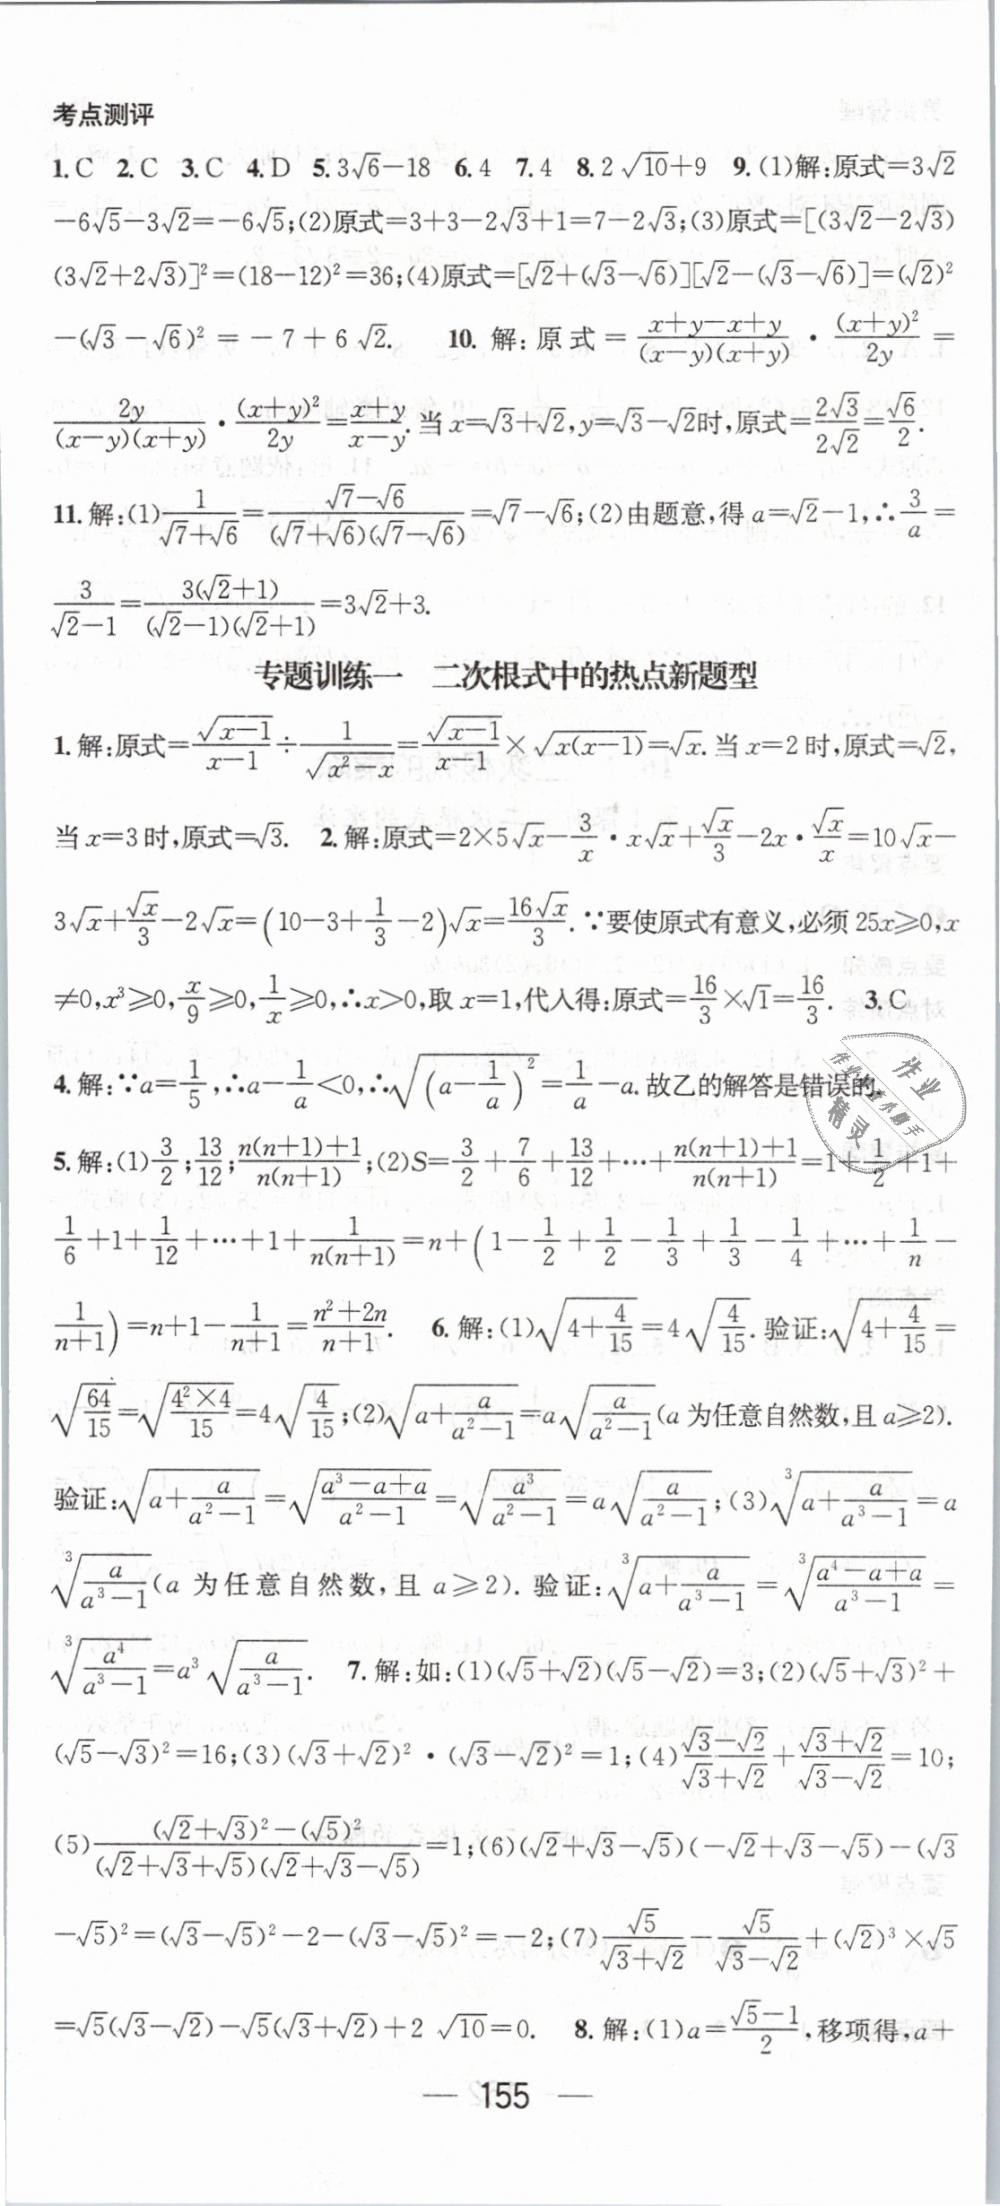 考点测评
1.C 2.C 3.C 4.D 5.3√6−18 6.4 7.4 8.2√10+9 9.(1)解:原式=3√2
−6√5−3√2=−6√5;(2)原式=3+3−2√3+1=7−2√3;(3)原式=[(3√2−2√3)
(3√2+2√3)]²=(18−12)²=36;(4)原式=[√2+(√3−√6)][√2−(√3−√6)]=(√2)²
−(√3−√6)²=−7+6√2. 10.解:原式=(x+y−x+y)/((x−y)(x+y))·(x+y)²/(2y)=
2y/((x−y)(x+y))·(x+y)²/(2y)=(x+y)/(x−y).当x=√3+√2,y=√3−√2时,原式=2√3/(2√2)=√6/2.
11.解:(1)1/(√7+√6)=(√7−√6)/((√7+√6)(√7−√6))=√7−√6;(2)由题意,得a=√2−1,∴3/a=
3/(√2−1)=3(√2+1)/((√2−1)(√2+1))=3√2+3.
专题训练一 二次根式中的热点新题型
1.解:原式=√(x−1)/(x−1)÷1/√(x²−x)=√(x−1)/(x−1)×√(x(x−1))=√x.当x=2时,原式=√2,
当x=3时,原式=√3. 2.解:原式=2×5√x−3/x·x√x+√x/3−2x·√x/x=10√x−
3√x+√x/3−2√x=(10−3+1/3−2)√x=16√x/3.∵要使原式有意义,必须25x≥0,x
≠0,x³≥0,x/9≥0,1/x≥0,∴x>0,取x=1,代入得:原式=16/3×√1=16/3. 3.C
4.解:∵a=1/5,∴a−1/a<0,∴√((a−1/a)²)=1/a−a.故乙的解答是错误的.
5.解:(1)3/2;13/12;(n(n+1)+1)/(n(n+1));(2)S=3/2+7/6+13/12+…+(n(n+1)+1)/(n(n+1))=1+1/2+1+
1/6+1+1/12+…+1+1/(n(n+1))=n+(1−1/2+1/2−1/3+1/3−1/4+…+1/n−
1/(n+1))=n+1−1/(n+1)=(n²+2n)/(n+1). 6.解:(1)√(4+4/15)=4√(4/15).验证:√(4+4/15)=
√(64/15)=√(4²×4/15)=4√(4/15);(2)√(a+a/(a²−1))=a√(a/(a²−1))(a为任意自然数,且a≥2).
验证:√(a+a/(a²−1))=√((a³−a+a)/(a²−1))=√(a³/(a²−1))=a√(a/(a²−1));(3)∛(a+a/(a³−1))=a
∛(a/(a³−1))(a为任意自然数,且a≥2).验证:∛(a+a/(a³−1))=∛((a⁴−a+a)/(a³−1))=
∛(a⁴/(a³−1))=a³√(a/(a³−1)). 7.解:如:(1)(√5+√2)(√5−√2)=3;(2)(√5+√3)²+
(√5−√3)²=16;(3)(√3+√2)²·(√3−√2)²=1;(4)(√3−√2)/(√3+√2)+(√3+√2)/(√3−√2)=10;
(5)((√2+√3)²−(√5)²)/((√2+√3+√5)(√2+√3−√5))=1;(6)(√2+√3−√5)(−√2+√3−√5)−(√3
−√5)²=(√3−√5)²−2−(√3−√5)²=−2;(7)√5/(√3+√2)−√5/(√3−√2)+(√2)³×√5
=√5(√3−√2)−√5(√3+√2)+2√10=0. 8.解:(1)a=(√5−1)/2,移项得,a+
— 155 —
作业
精灵